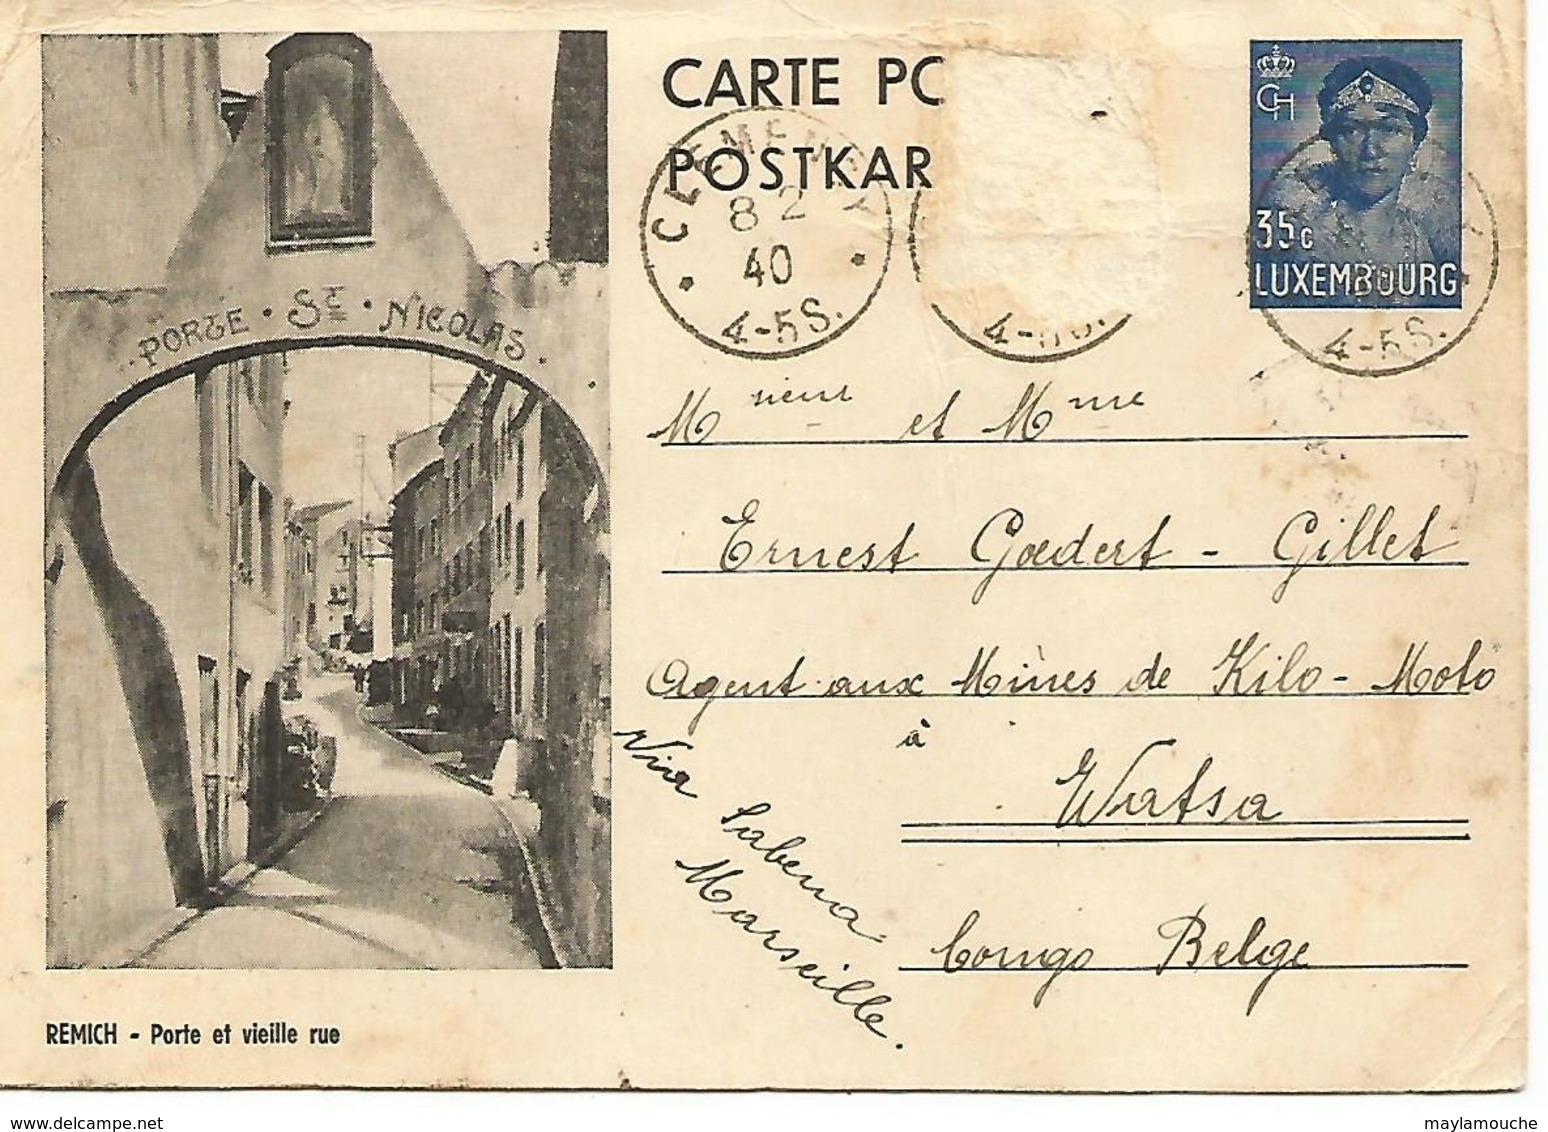 PORTE · ST · NICOLAS
REMICH - Porte et vieille rue
CARTE PO
POSTKAR
CLEMENCY
8 2
40
4-5S.
4-5S.
4-5S.
CH
35c
LUXEMBOURG
Msieur et Mme
Ernest Goedert - Gillet
Agent aux Mines de Kilo-Moto
à
Watsa
Congo Belge
Via Sabena
Marseille.
delcampe.net
maylamouche